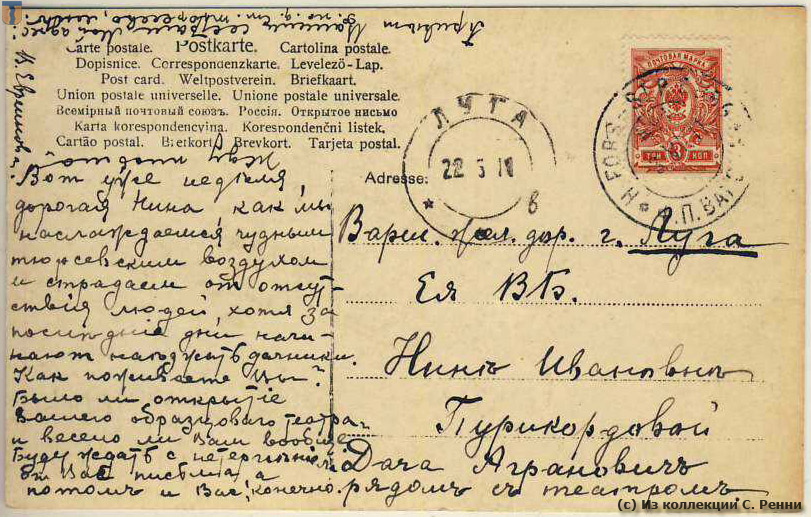 Привѣтъ Вашей сестрѣ. Мой адресъ:
Carte postale. Postkarte. Cartolina postale.
Dopisnice. Correspondenzkarte. Levelező-Lap.
Post card. Weltpostverein. Briefkaart.
Union postale universelle. Unione postale universale.
Всемірный почтовый союзъ. Россія. Открытое письмо
Karta korespondencyjna. Korespondenční listek.
Cartão postal. Brefkort. Brevkort. Tarjeta postal.
Adresse:
ЛУГА
22 5 11
в
ПОЧТОВАЯ МАРКА
ТРИ 3 КОП
Вотъ уже недѣля,
дорогая Нина, какъ мы
наслаждаемся чуднымъ
воздухомъ
и страдаемъ отъ отсут-
ствія людей, хотя за
послѣдніе дни начи-
наютъ наѣзжать дачники.
Какъ поживаете Вы?
Было ли открытіе
Вашего образцоваго театра
и весело ли Вамъ вообще
Буду ждать с нетерпѣніемъ
отъ Васъ письма, а
потомъ и Васъ, конечно.
Варш. жел. дор. г. Луга
Ея ВБ.
Нинѣ Ивановнѣ
Пурикордовой
Дача Аграновичъ
рядомъ съ театромъ.
(c) Из коллекции С. Ренни